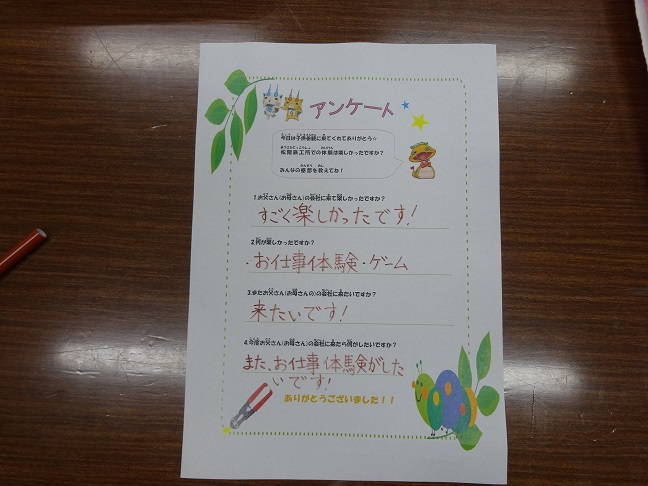 アンケート
今日は子供参観に来てくれてありがとう☆
松尾鉄工所での体験は楽しかったですか？
みんなの感想を教えてね！
1.お父さん(お母さん)の会社に来て楽しかったですか？
すごく楽しかったです！
2.何が楽しかったですか？
・お仕事体験・ゲーム
3.またお父さん(お母さんの)の会社に来たいですか？
来たいです！
4.今度お父さん(お母さん)の会社に来たら何がしたいですか？
また、お仕事体験がした
いです！
ありがとうございました！！